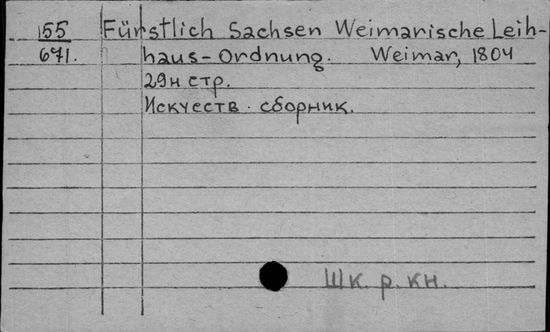 155 Fürstlich Sachsen Weimarische Leih-
671. haus-Ordnung. Weimar, 1804
29н стр.
Искуств. сборник.
Шк. р. кн.